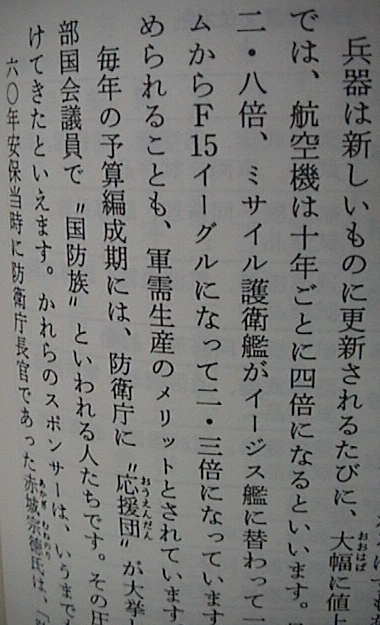 兵器は新しいものに更新されるたびに、大幅に値上
おおはば
では、航空機は十年ごとに四倍になるといいます。
二・八倍、ミサイル護衛艦がイージス艦に替わって一
ムからＦ15イーグルになって二・三倍になっています
められることも、軍需生産のメリットとされています
毎年の予算編成期には、防衛庁に〝応援団〟が大挙し
おうえんだん
部国会議員で〝国防族〟といわれる人たちです。その圧
けてきたといえます。かれらのスポンサーは、いうまで
六〇年安保当時に防衛庁長官であった赤城宗徳氏は、
あかぎむねのり